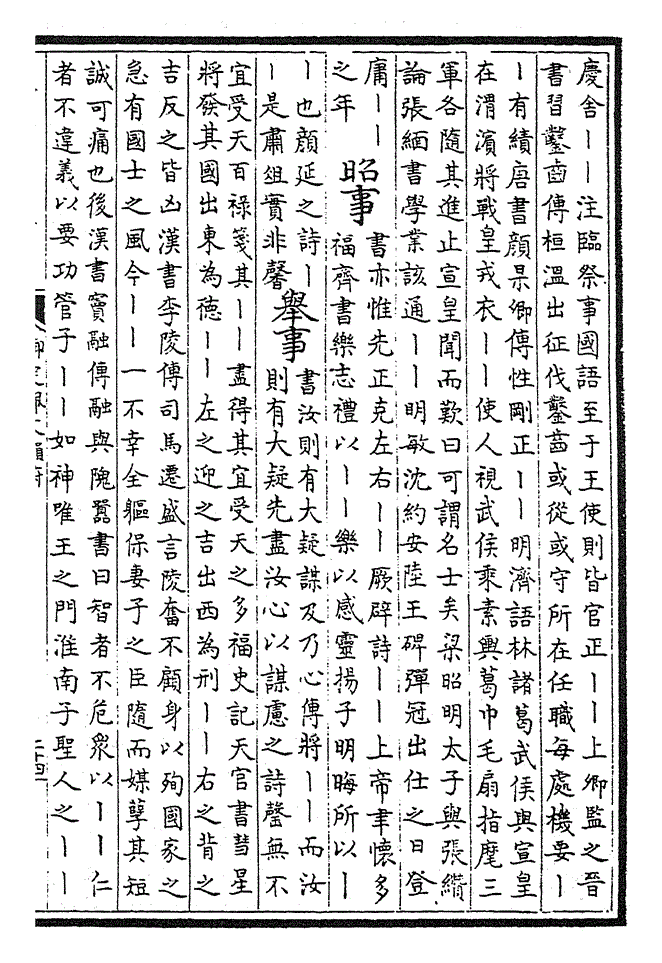 慶舍丨丨注臨祭事國語至于王使則皆官正丨丨上卿監之晉
書習鑿齒傳桓溫出征伐鑿齒或從或守所在任職每處機要丨
丨有績唐書顏杲卿傳性剛正丨丨明濟語林諸葛武侯與宣皇
在渭濱將戰皇戎衣丨丨使人視武侯乘素輿葛巾毛扇指麾三
軍各隨其進止宣皇聞而歎曰可謂名士矣梁昭明太子與張纘
論張緬書學業該通丨丨明敏沈約安陸王碑彈冠出仕之日登
庸丨丨
之年
昭事
書亦惟先正克左右丨丨厥辟詩丨丨上帝聿懷多
福齊書樂志禮以丨丨樂以感靈揚子明晦所以丨
丨也顏延之詩丨
丨是肅俎實非馨
舉事
書汝則有大疑謀及乃心傳將丨丨而汝
則有大疑先盡汝心以謀慮之詩罄無不
宜受天百祿箋其丨丨盡得其宜受天之多福史記天官書彗星
將發其國出東為德丨丨左之迎之吉出西為刑丨丨右之背之
吉反之皆凶漢書李陵傳司馬遷盛言陵奮不顧身以殉國家之
急有國士之風今丨丨一不幸全軀保妻子之臣隨而媒孽其短
誠可痛也後漢書竇融傳融與隗囂書曰智者不危衆以丨丨仁
者不違義以要功管子丨丨如神唯王之門淮南子聖人之丨丨